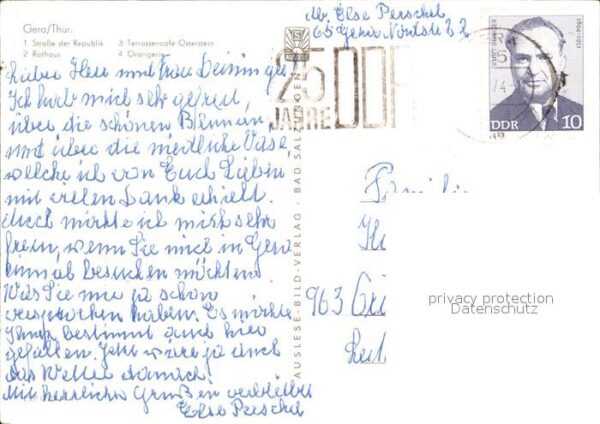 Gera/Thür.
1 Straße der Republik 3 Terrassencafe Osterstein
2 Rathaus 4 Orangerie
Lieber Herr und Frau Deininger
Ich hab mich sehr gefreut,
über die schönen Blumen
und über die niedliche Vase,
welche ich von Euch Lieben
mit vielen Dank erhielt.
Auch möchte ich mich sehr
freuen, wenn Sie mich in Gera
einmal besuchen möchten.
Was Sie mir ja schon
versprochen haben. Es möchte
Ihnen bestimmt auch hier
gefallen. Jetzt wäre ja auch
das Wetter danach.
Mit herzlichen Grüßen verbleibt
Else Perschel
AUSLESE-BILD-VERLAG · BAD SALZUNGEN
Abs. Else Perschel
65 Gera
25
JAHRE DDR
1864-1951
DDR 10
963
privacy protection
Datenschutz